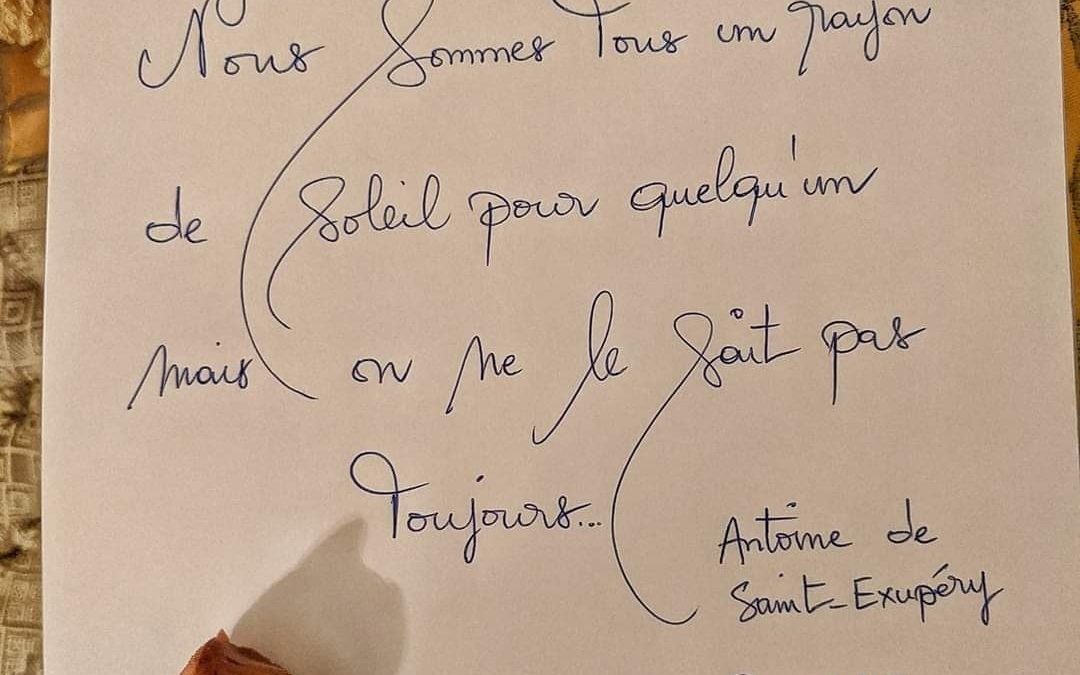 Nous sommes Tous un rayon
de soleil pour quelqu'un
mais on ne le sait pas
Toujours...
Antoine de
Saint-Exupéry